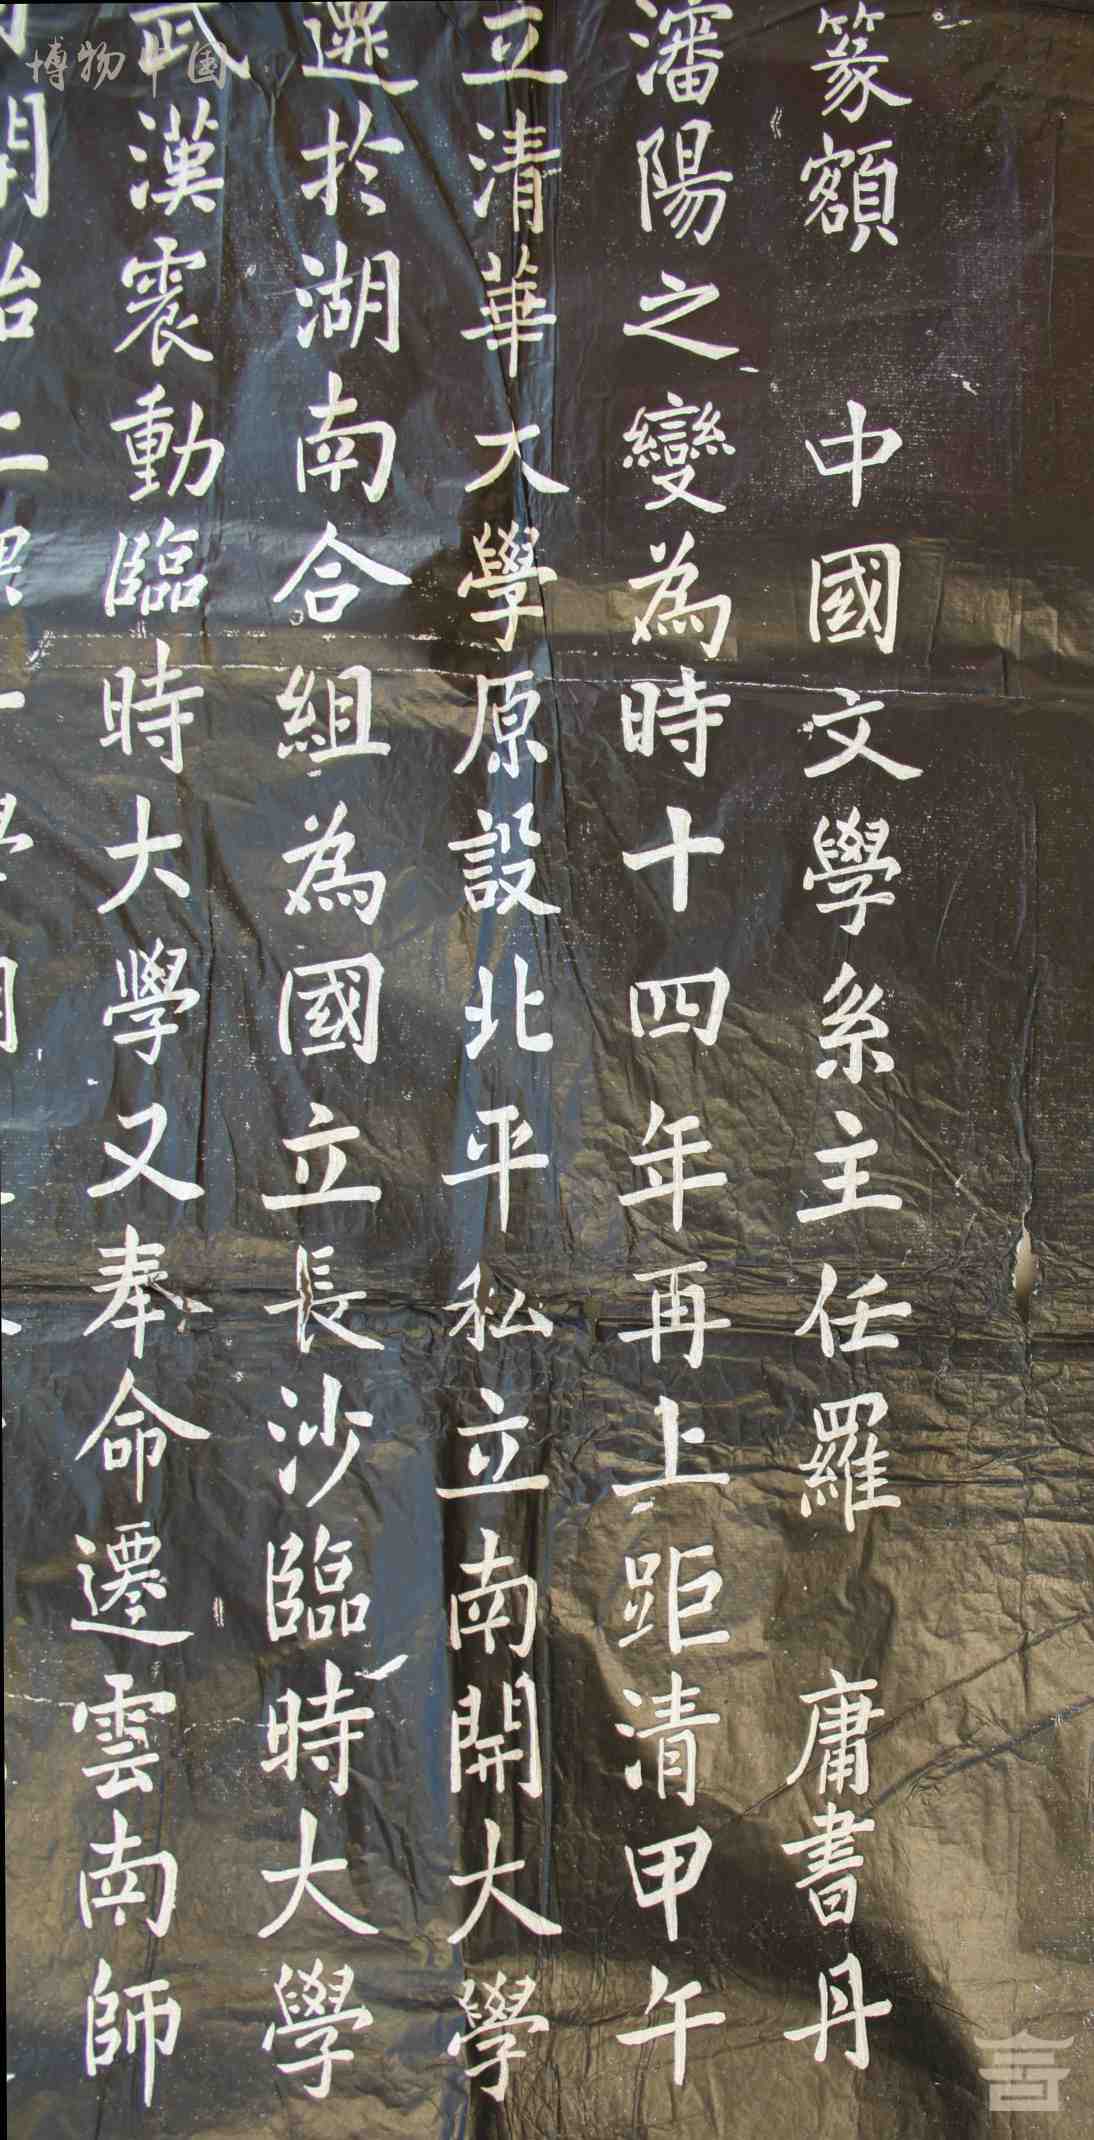 篆額 中國文學系主任羅 庸書丹
瀋陽之變為時十四年再上距清甲午
立清華大學原設北平私立南開大學
遷於湖南合組為國立長沙臨時大學
武漢震動臨時大學又奉命遷雲南師
博物中国